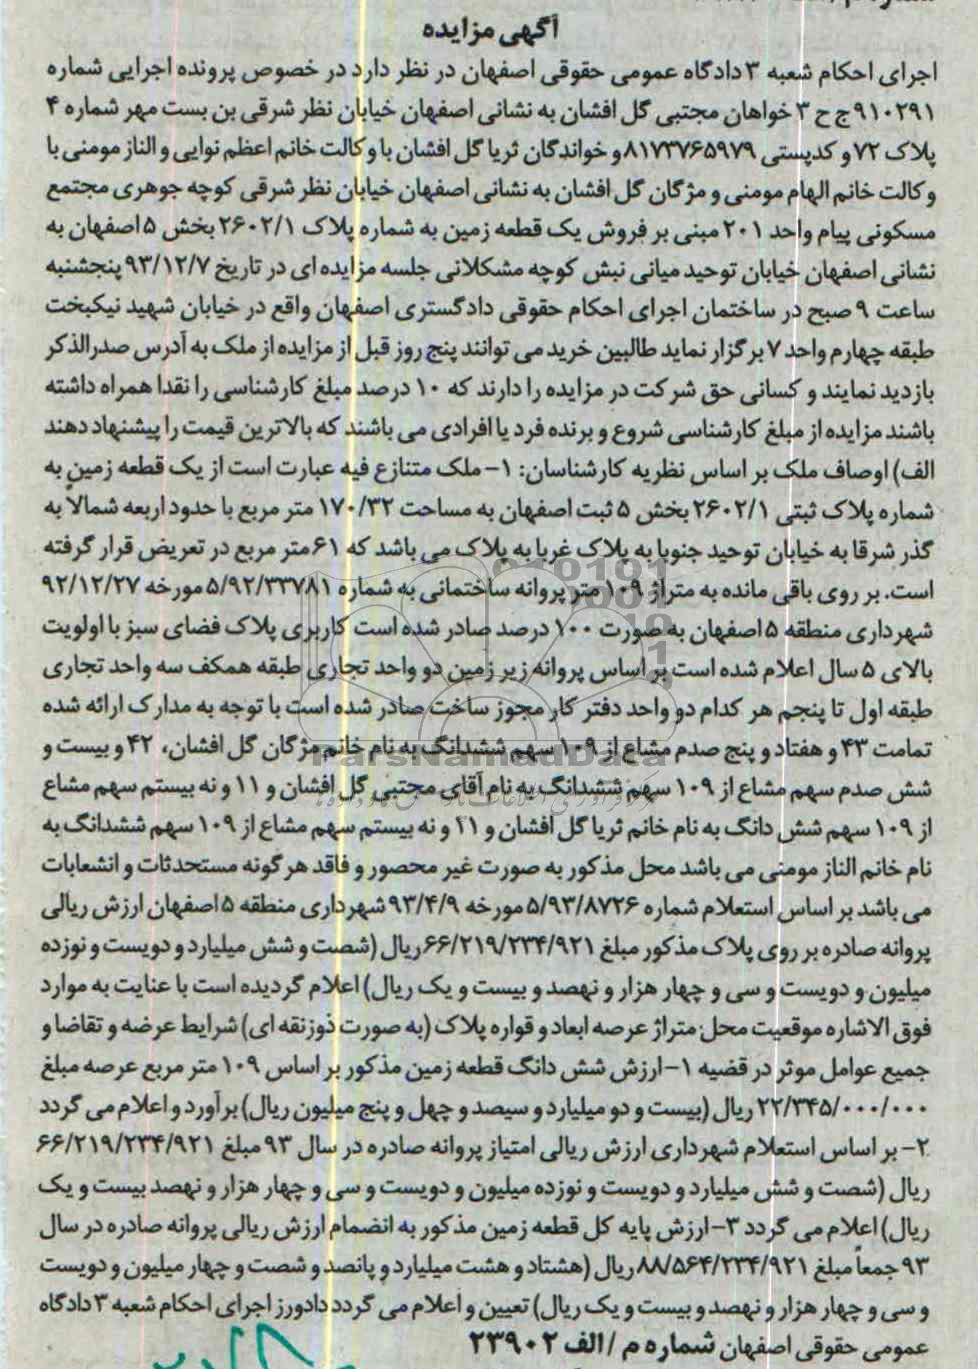 آگهی مزایده
اجرای احکام شعبه ۳ دادگاه عمومی حقوقی اصفهان در نظر دارد در خصوص پرونده اجرایی شماره
۹۱۰۲۹۱ ج ح ۳ خواهان مجتبی گل افشان به نشانی اصفهان خیابان نظر شرقی بن بست مهر شماره ۴
پلاک ۷۲ و کدپستی ۸۱۷۳۷۶۵۹۷۹ و خواندگان ثریا گل افشان با وکالت خانم اعظم نوایی و الناز مومنی با
وکالت خانم الهام مومنی و مژگان گل افشان به نشانی اصفهان خیابان نظر شرقی کوچه جوهری مجتمع
مسکونی پیام واحد ۲۰۱ مبنی بر فروش یک قطعه زمین به شماره پلاک ۲۶۰۲/۱ بخش ۵ اصفهان به
نشانی اصفهان خیابان توحید میانی نبش کوچه مشکلاتی جلسه مزایده ای در تاریخ ۹۳/۱۲/۷ پنجشنبه
ساعت ۹ صبح در ساختمان اجرای احکام حقوقی دادگستری اصفهان واقع در خیابان شهید نیکبخت
طبقه چهارم واحد ۷ برگزار نماید طالبین خرید می توانند پنج روز قبل از مزایده از ملک به آدرس صدرالذکر
بازدید نمایند و کسانی حق شرکت در مزایده را دارند که ۱۰ درصد مبلغ کارشناسی را نقدا همراه داشته
باشند مزایده از مبلغ کارشناسی شروع و برنده فرد یا افرادی می باشند که بالاترین قیمت را پیشنهاد دهند
الف) اوصاف ملک بر اساس نظریه کارشناسان: ۱- ملک متنازع فیه عبارت است از یک قطعه زمین به
شماره پلاک ثبتی ۲۶۰۲/۱ بخش ۵ ثبت اصفهان به مساحت ۱۷۰/۳۲ متر مربع با حدود اربعه شمالاً به
گذر شرقا به خیابان توحید جنوبا به پلاک غربا به پلاک می باشد که ۶۱ متر مربع در تعریض قرار گرفته
است. بر روی باقی مانده به متراژ ۱۰۹ متر پروانه ساختمانی به شماره ۵/۹۲/۳۳۷۸۱ مورخه ۹۲/۱۲/۲۷
شهرداری منطقه ۵ اصفهان به صورت ۱۰۰ درصد صادر شده است کاربری پلاک فضای سبز با اولویت
بالای ۵ سال اعلام شده است بر اساس پروانه زیر زمین دو واحد تجاری طبقه همکف سه واحد تجاری
طبقه اول تا پنجم هر کدام دو واحد دفتر کار مجوز ساخت صادر شده است با توجه به مدارک ارائه شده
تمامت ۴۳ و هفتاد و پنج صدم مشاع از ۱۰۹ سهم ششدانگ به نام خانم مژگان گل افشان، ۴۲ و بیست و
شش صدم سهم مشاع از ۱۰۹ سهم ششدانگ به نام آقای مجتبی گل افشان و ۱۱ و نه بیستم سهم مشاع
از ۱۰۹ سهم شش دانگ به نام خانم ثریا گل افشان و ۱۱ و نه بیستم سهم مشاع از ۱۰۹ سهم ششدانگ به
نام خانم الناز مومنی می باشد محل مذکور به صورت غیر محصور و فاقد هر گونه مستحدثات و انشعابات
می باشد بر اساس استعلام شماره ۵/۹۳/۸۷۲۶ مورخه ۹۳/۴/۹ شهرداری منطقه ۵ اصفهان ارزش ریالی
پروانه صادره بر روی پلاک مذکور مبلغ ۶۶/۲۱۹/۲۳۴/۹۲۱ ریال (شصت و شش میلیارد و دویست و نوزده
میلیون و دویست و سی و چهار هزار و نهصد و بیست و یک ریال) اعلام گردیده است با عنایت به موارد
فوق الاشاره موقعیت محل: متراژ عرصه ابعاد و قواره پلاک (به صورت ذوزنقه ای) شرایط عرضه و تقاضا و
جمیع عوامل موثر در قضیه ۱- ارزش شش دانگ قطعه زمین مذکور بر اساس ۱۰۹ متر مربع عرصه مبلغ
۲۲/۳۴۵/۰۰۰/۰۰۰ ریال (بیست و دو میلیارد و سیصد و چهل و پنج میلیون ریال) برآورد و اعلام می گردد
۲- بر اساس استعلام شهرداری ارزش ریالی امتیاز پروانه صادره در سال ۹۳ مبلغ ۶۶/۲۱۹/۲۳۴/۹۲۱
ریال (شصت و شش میلیارد و دویست و نوزده میلیون و دویست و سی و چهار هزار و نهصد بیست و یک
ریال) اعلام می گردد ۳- ارزش پایه کل قطعه زمین مذکور به انضمام ارزش ریالی پروانه صادره در سال
۹۳ جمعاً مبلغ ۸۸/۵۶۴/۲۳۴/۹۲۱ ریال (هشتاد و هشت میلیارد و پانصد و شصت و چهار میلیون و دویست
و سی و چهار هزار و نهصد و بیست و یک ریال) تعیین و اعلام می گردد دادورز اجرای احکام شعبه ۳ دادگاه
عمومی حقوقی اصفهان شماره م / الف ۲۳۹۰۲
ParsNamadData